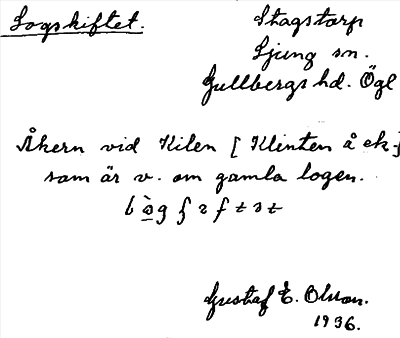 Logskiftet.
Stagstorp
Ljung sn.
Gullbergs hd. Ögl
Åkern vid Kilen [Klinten å ek.]
som är v. om gamla logen.
Gustaf E. Olson.
1936.